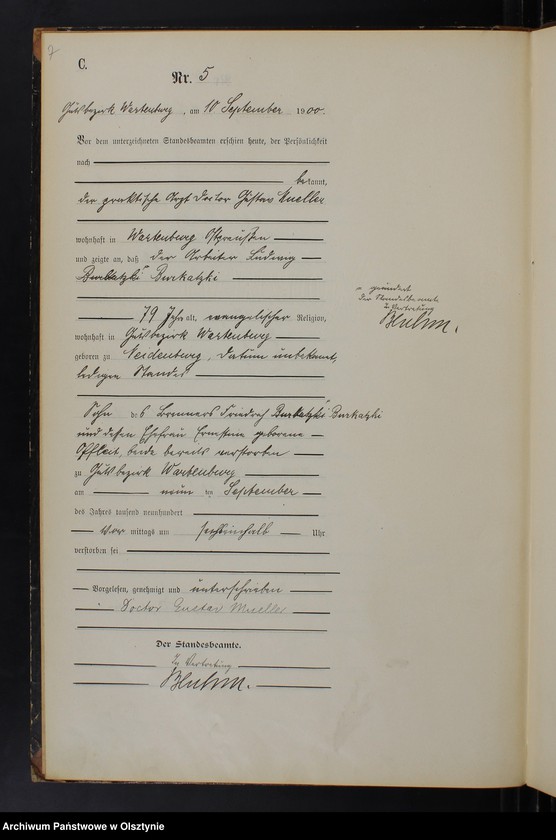 C.
Nr. 5
Gutsbezirk Wartenburg, am 10 September 1900.
Vor dem unterzeichneten Standesbeamten erschien heute, der Persönlichkeit
nach
bekannt,
der praktische Arzt Doctor Gustav Mueller
wohnhaft in Wartenburg Ostpreußen
und zeigte an, daß der Arbeiter Ludwig
Burkatzki
79 Jahr alt, evangelischer Religion,
wohnhaft in Gutsbezirk Wartenburg
geboren zu Neidenburg, Datum unbekannt,
ledigen Standes
Sohn des Brenners Friedrich Burkatzki
und dessen Ehefrau Ernstine geborene
beide bereits verstorben
zu Gutsbezirk Wartenburg
am neun ten September
des Jahres tausend neunhundert
Vor mittags um Uhr
verstorben sei
Vorgelesen, genehmigt und unterschrieben
Doctor Gustav Mueller
Der Standesbeamte.
In Vertretung
Bluhm.
geändert
Der Standesbeamte
in Vertretung
Bluhm.
Archiwum Państwowe w Olsztynie